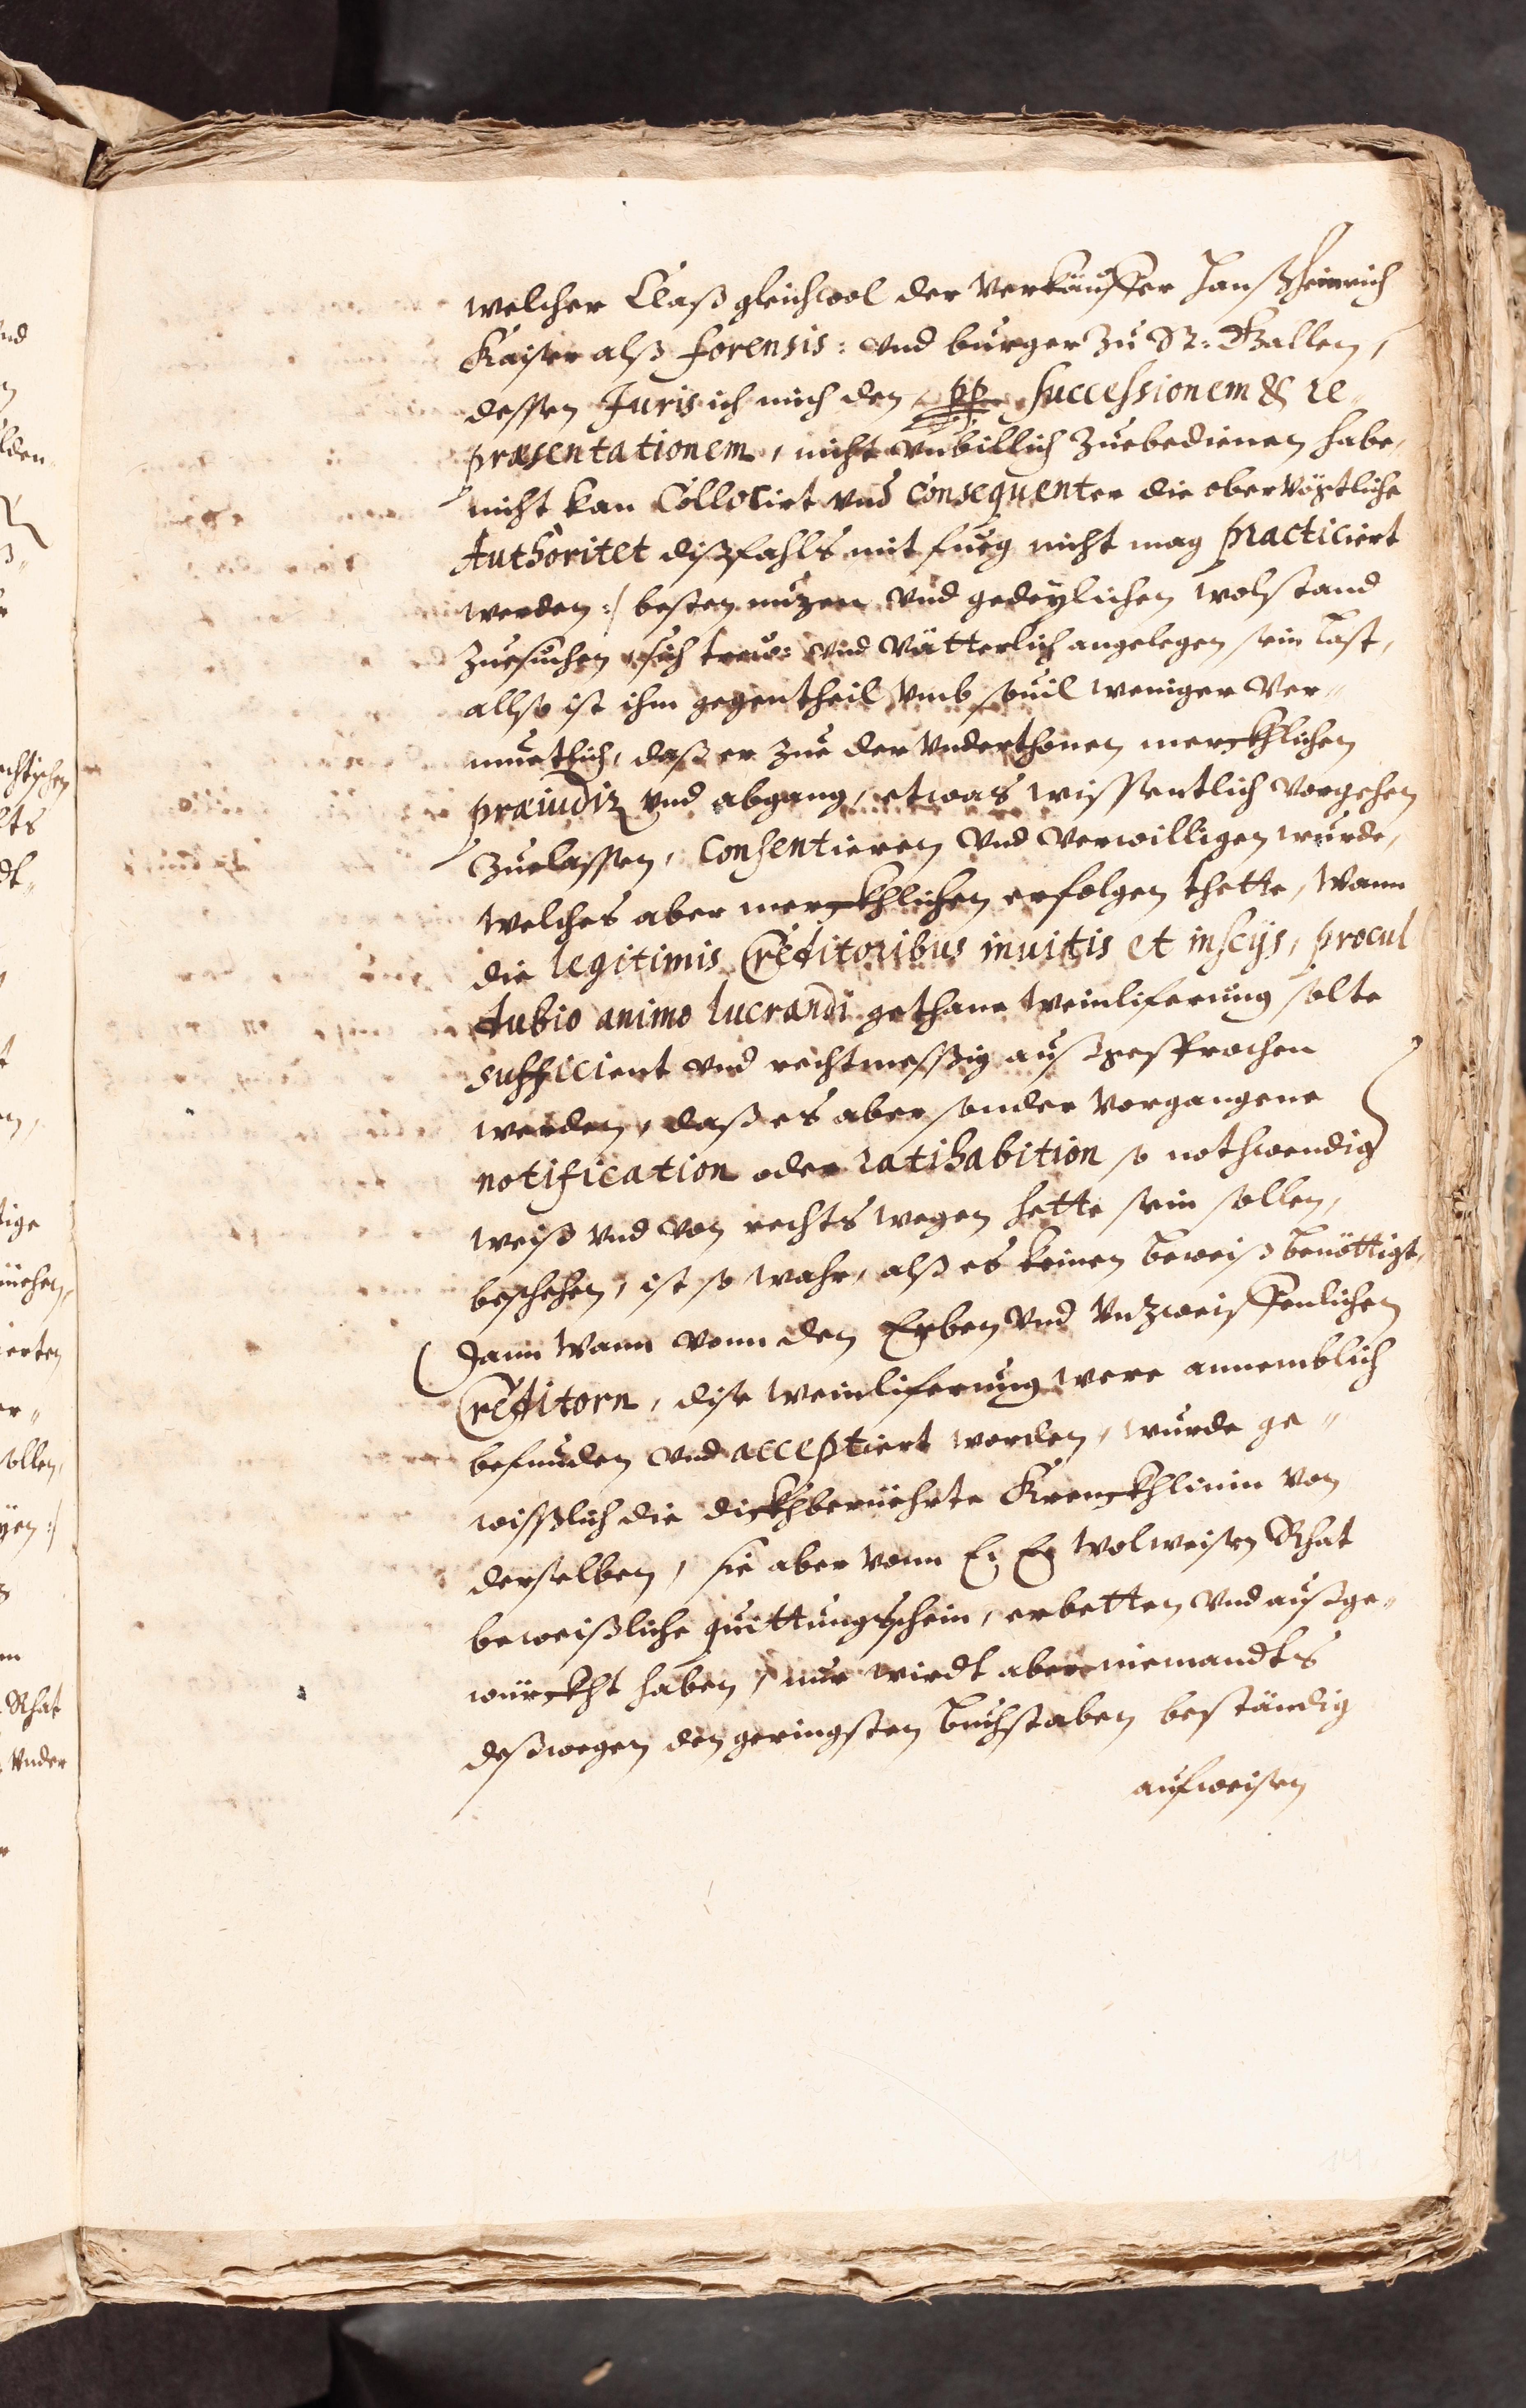 welcher Claß gleichwol der Verkäuffer Hanß Heinrich
Kaiser alß forensis: vnd burger zu St: Gallen,
dessen Juris ich mich den, pp successionem & re¬
præsentationem, nicht vnbillich zuebedienen habe,
nicht kan Collocirt vnd Consequenter die obervögtliche
Authoritet dißfahls mit fueg nicht mag practiciert
werden :/ besten nuzen vnd gedeylichen wolstand
zuesuchen, sich trew: vnd Vätterlich angelegen sein last,
allso ist ihm gegentheil vmb souil weniger Ver¬
muetlich, daß er zue der Vnderthonen merckhlichen
præiudiz vnd abgang, etwas wissentlich vorgehen
Zuelassen, Consentieren vnd verwilligen wurde,
welches aber merckhlichen erfolgen thette, wann
die legitimis Creditoribus inuitis et inscijs, procul
dubio animo lucrandi gethane weinliferung solte
sufficient vnd rechtmessig außgesprochen
werden, daß es aber sonder vorgangene
notification oder ratihabition so nothwendig
weiß vnd von rechts wegen hette sein sollen,
beschehen, ist so wahr, alß es keinen beweiß benöttigt,
Dann wann vonn den Erben vnd vnzweiffenlichen
Creditorn, dise weinliferung were annemblich
befunden vnd acceptiert worden, wurde ge¬
wisslich die dickhberüehrte Krenckhlinin von
derselben, sie aber vonn E: E: wolweisen Rhat
beweißliche quittungschein, erbetten vnd außge¬
würckht haben, nur wirdt aber niemandts
deßwegen den geringsten buchstaben beständig
aufweisen